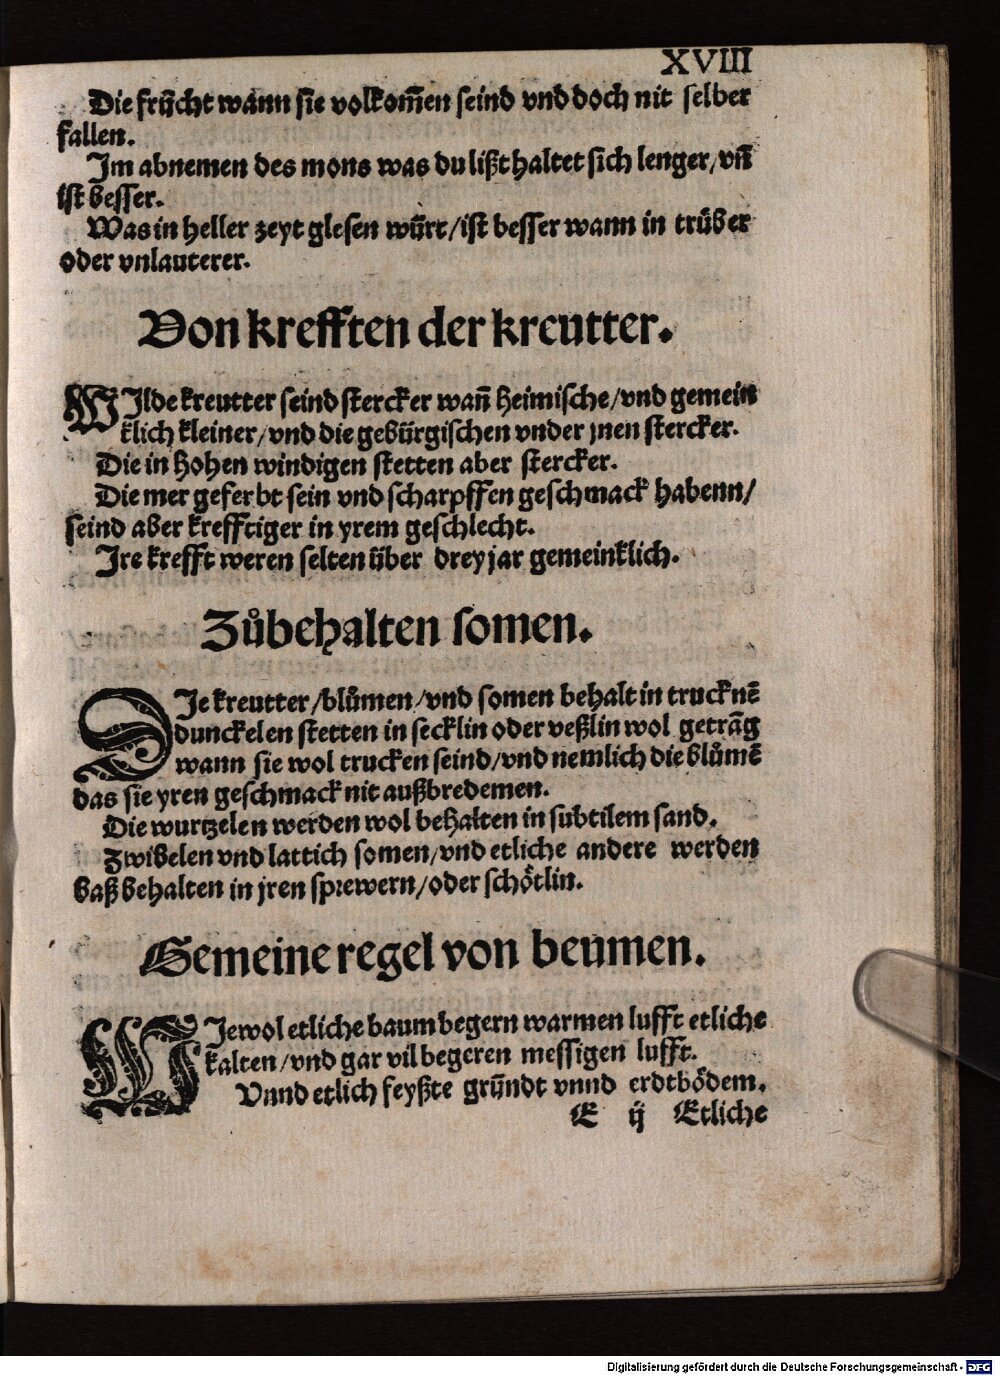 XVIII
Die frücht wann sie volkom̄en seind vnd doch nit selber
fallen.
Im abnemen des mons was du lißt haltet sich lenger/vn̄
ist besser.
Was in heller zeyt glesen würt/ist besser wann in trüber
oder vnlauterer.
Von krefften der kreutter.
WIlde kreutter seind stercker wan̄ heimische/vnd gemein
klich kleiner/vnd die gebürgischen vnder jnen stercker.
Die in hohen windigen stetten aber stercker.
Die mer geferbt sein vnd scharpffen geschmack habenn/
seind aber krefftiger in yrem geschlecht.
Ire krefft weren selten über drey jar gemeinklich.
Zůbehalten somen.
DIe kreutter/blůmen/vnd somen behalt in trucknē
dunckelen stetten in secklin oder veßlin wol getrāg
wann sie wol trucken seind/vnd nemlich die blůmē
das sie yren geschmack nit außbredemen.
Die wurtzelen werden wol behalten in subtilem sand.
Zwibelen vnd lattich somen/vnd etliche andere werden
baß behalten in jren sprewern/oder schötlin.
Gemeine regel von beumen.
WIewol etliche baum begern warmen lufft etliche
kalten/vnd gar vil begeren messigen lufft.
Vnnd etlich feyßte gründt vnnd erdtbödem.
E ij Etliche
Digitalisierung gefördert durch die Deutsche Forschungsgemeinschaft - DFG